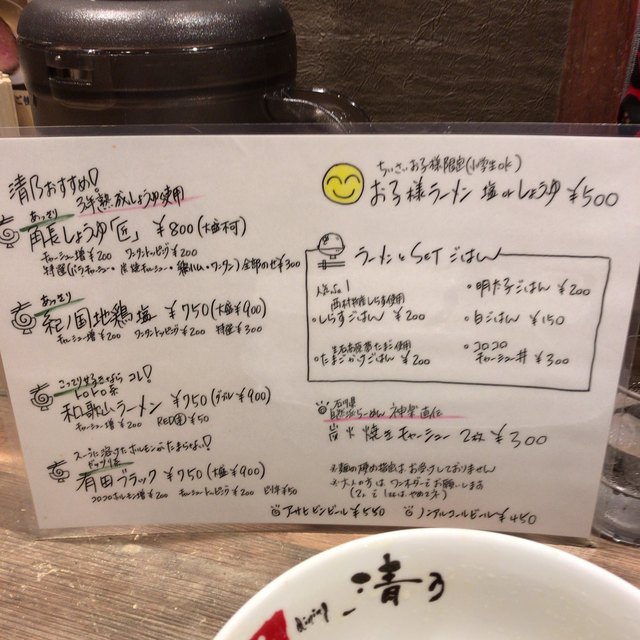 清乃おすすめ!
3年熟成しょうゆ使用
あっさり
角長しょうゆ「匠」 ¥800(大盛不可)
チャーシュー増¥200 ワンタントッピング¥200
特選(バラチャーシュー・炭焼チャーシュー・鶏ハム・ワンタン)全部のせ¥300
あっさり
紀ノ国地鶏塩 ¥750(大盛¥900)
チャーシュー増¥200 ワンタントッピング¥200 特選¥300
こってり好きなら コレ!
トロトロ系
和歌山ラーメン ¥750(ダブル¥900)
チャーシュー増¥200 RED ¥50
スープに溶けたホルモンがたまらない!
有田ブラック ¥750(大盛¥900)
コロコロホルモン増¥200 チャーシュートッピング¥200 ¥50
ちいさいお子様限定(小学生ok)
お子様ラーメン 塩orしょうゆ ¥500
ラーメンとSETごはん
人気No.1
しらす使用
・しらすごはん ¥200
たまご使用
・たまごかけごはん ¥200
・明太子ごはん ¥200
・白ごはん ¥150
・コロコロ
チャーシュー丼 ¥300
石川県
自然派らーめん 神楽 直伝
炭火焼きチャーシュー 2枚 ¥300
※麺の硬め指定はお受けしておりません
※大人の方はワンオーダーをお願いします
アサヒビンビール ¥550
ノンアルコールビール ¥450
dining
清乃